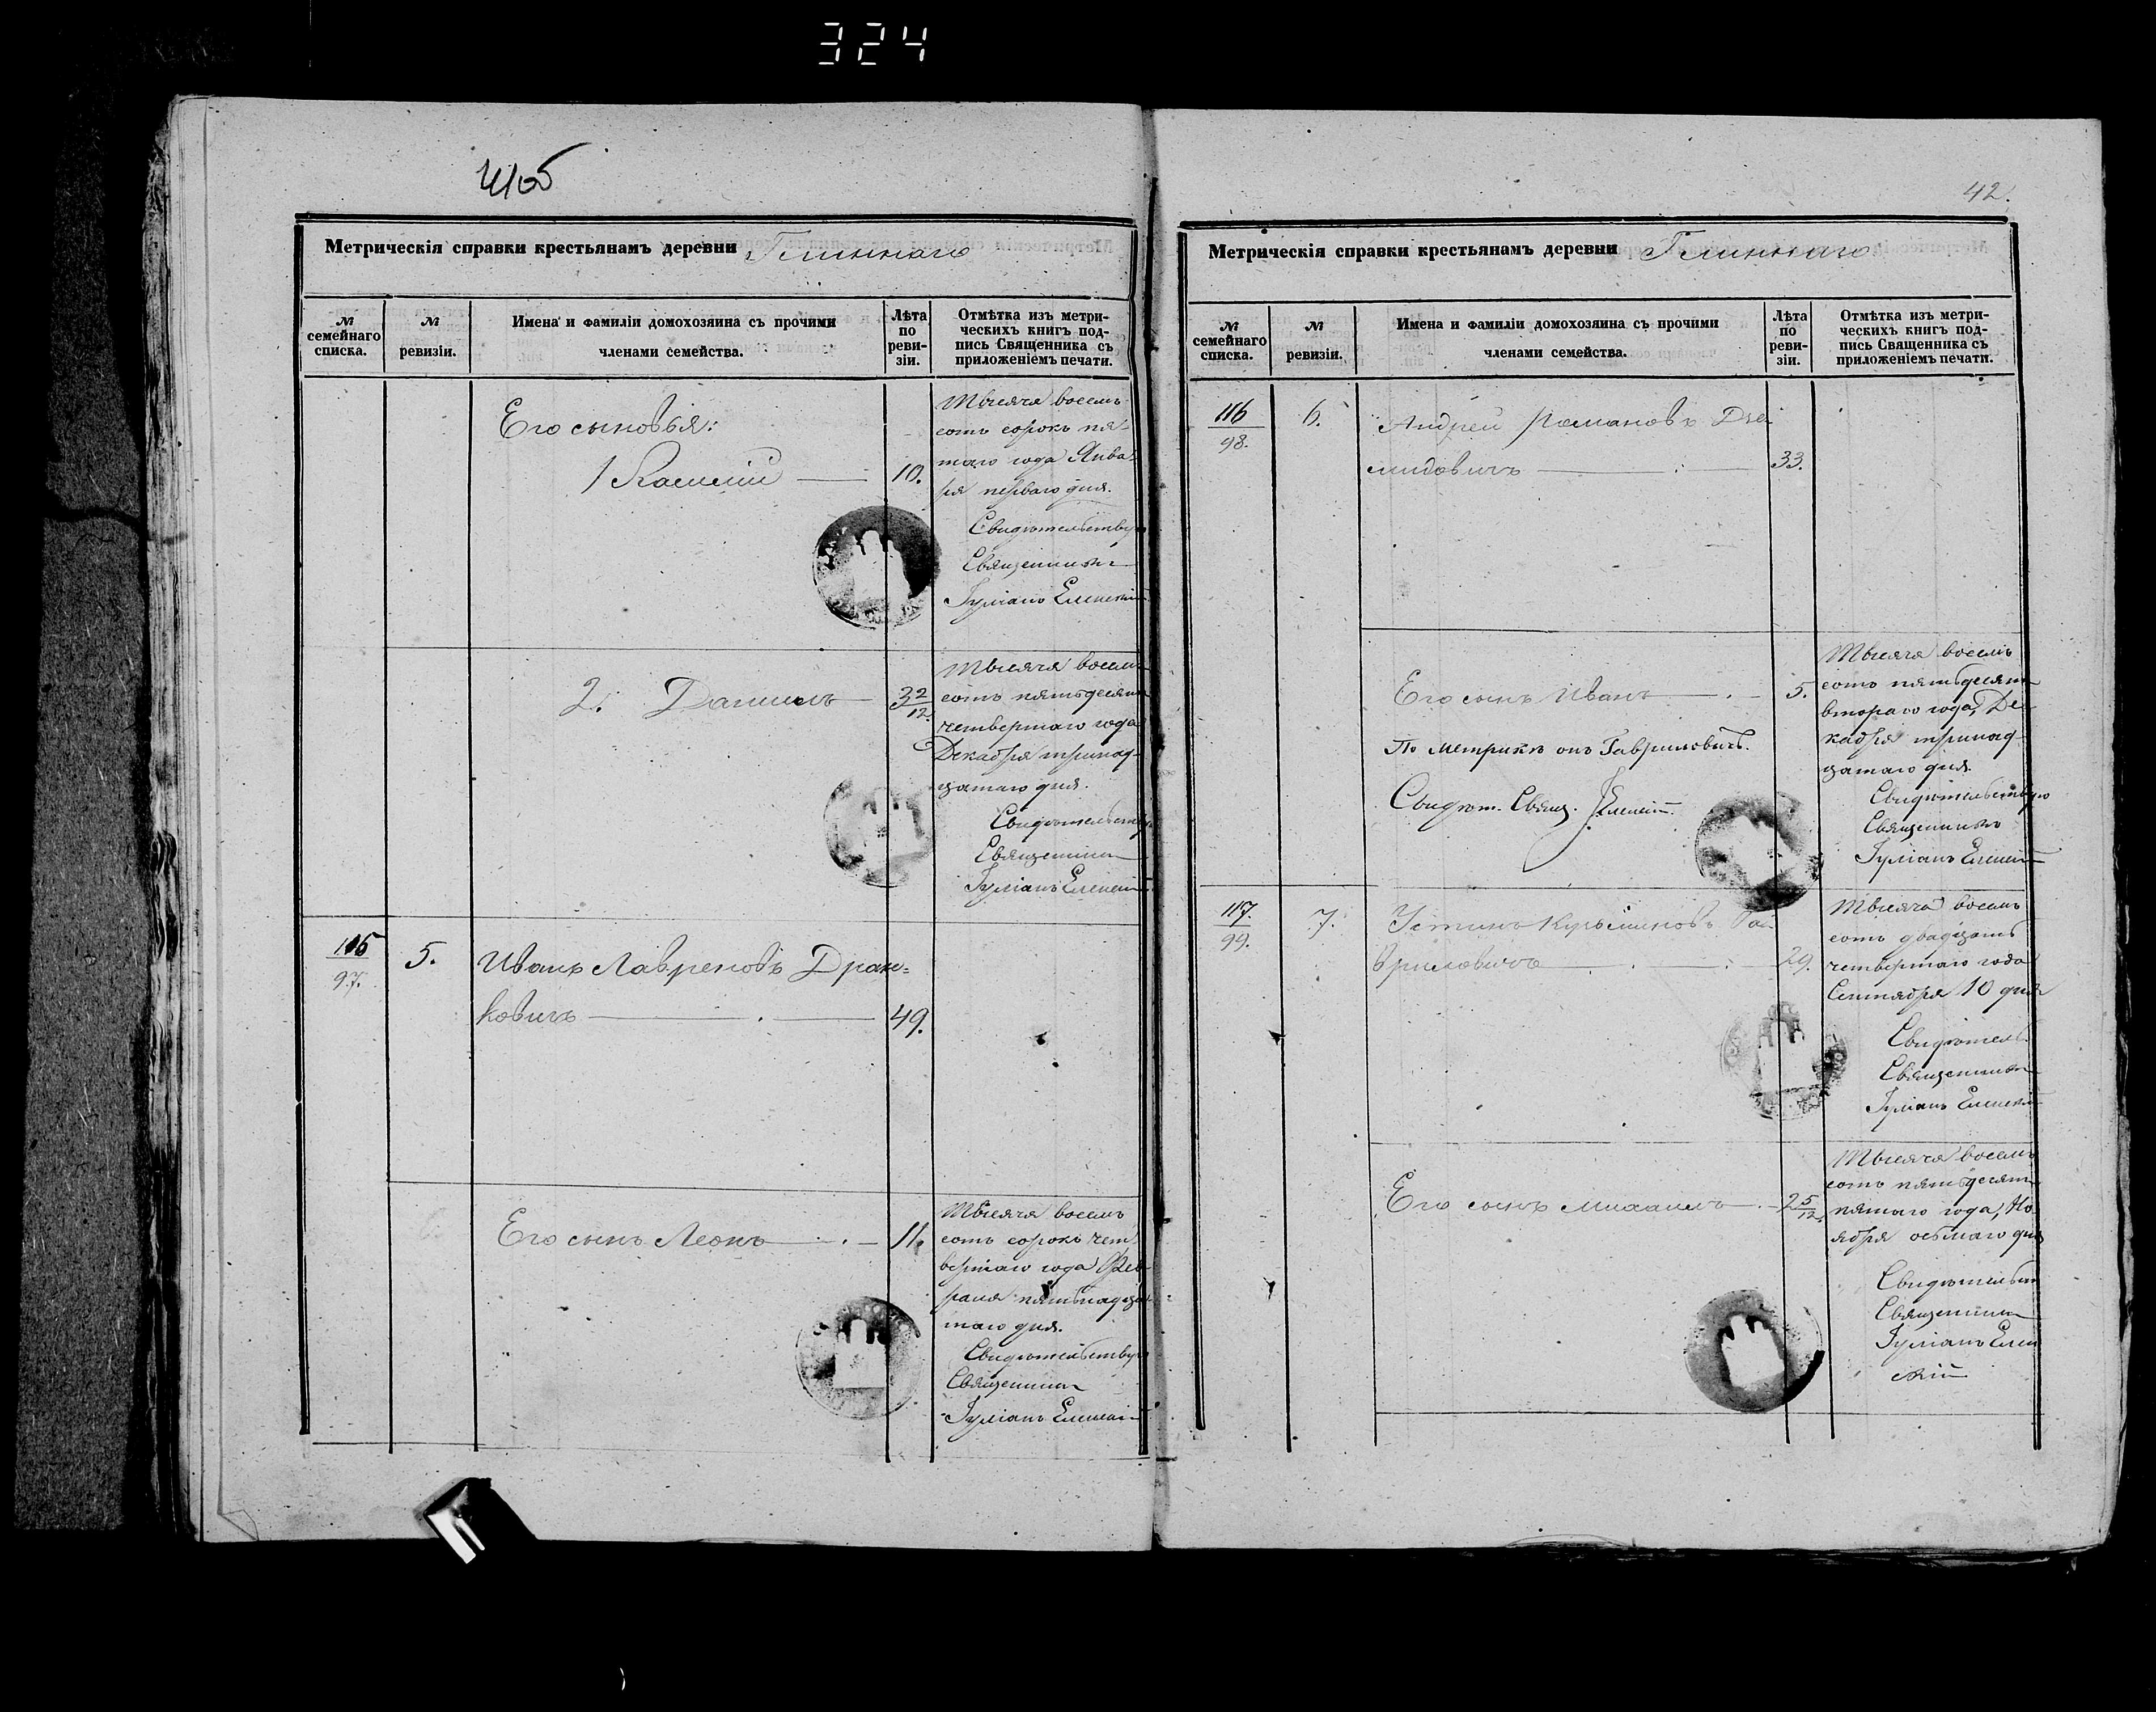 324
41об
Метрическія справки крестьянамъ деревни Глиннаго
№ семейнаго списка.
№ ревизіи.
Имена и фамиліи домохозяина съ прочими членами семейства.
Лѣта по реви-зіи.
Отмѣтка изъ метри-ческихъ книгъ под-пись Священника съ приложеніемъ печати.
Его сыновья:
1 10.
Тысяча восемь
сотъ сорокъ пя-
таго года Янва-
ря перваго дня.
Свидѣтельствую
Священникъ
Іуліанъ
2. Даниилъ 3 2/12.
Тысяча восемь
сотъ пятьдесятъ
четвертаго года
Декабря тринад-
цатаго дня.
Священникъ
Іуліанъ
97.
5.
Иванъ Лавреновъ Дран-
ковичъ 49.
Его сынъ Леонъ 11.
Тысяча восемь
сотъ сорокъ чет
вертаго года Фев
раля пятьнадца
таго дня.
Свидѣтельствую
Священникъ
Іуліанъ
42.
Метрическія справки крестьянамъ деревни Глиннаго
№ семейнаго списка.
№ ревизіи.
Имена и фамиліи домохозяина съ прочими членами семейства.
Лѣта по реви-зіи.
Отмѣтка изъ метри-ческихъ книгъ под-пись Священника съ приложеніемъ печати.
116
98.
6.
Андрей Романовъ
33.
Его сынъ Иванъ 5.
По метрикѣ онъ Гавриловичъ.
Свидѣт. Свящ.
Тысяча восемь
сотъ пятьдесятъ
втораго года, Де-
кабря тринад-
цатаго дня.
Свидѣтельствую
Священникъ
Іуліанъ
117.
99.
7.
Устинъ Га-
вриловичъ 29.
Тысяча восемь
сотъ двадцать
четвертаго года
Сентября 10 дня
Свидѣтель.
Священникъ
Іуліанъ
Его сынъ Михаилъ 2 5/12.
Тысяча восемь
сотъ пятьдесятъ
пятаго года, Но-
ября осьмаго дня
Священникъ
Іуліанъ